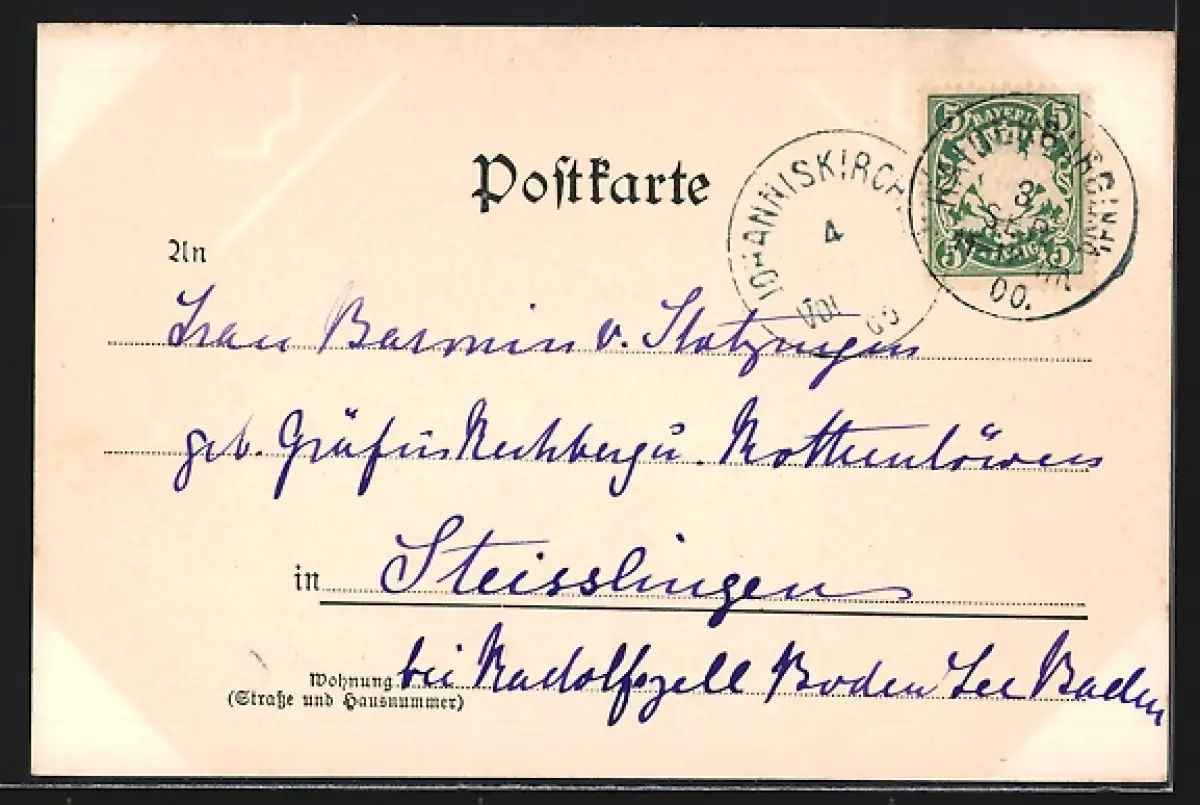 Postkarte
An
Frau Baronin v. Stotzingen
geb. Gräfin Rechberg u. Rothenlöwen
in Steisslingen
bei Radolfszell Boden See Baden
Wohnung
(Straße und Hausnummer)
JOHANNISKIRCH
4
VIII
00
5 BAYERN 5
5 5
3
SEP
00.